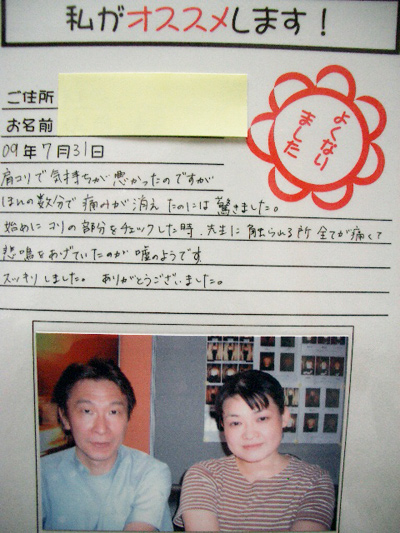 私がオススメします！
ご住所
お名前
よくなりました
09年7月31日
肩コリで気持ちが悪かったのですが
ほんの数分で痛みが消えたのには驚きました。
始めにコリの部分をチェックした時、先生に触られる所全てが痛くて
悲鳴をあげていたのが嘘のようです
スッキリしました。ありがとうございました。